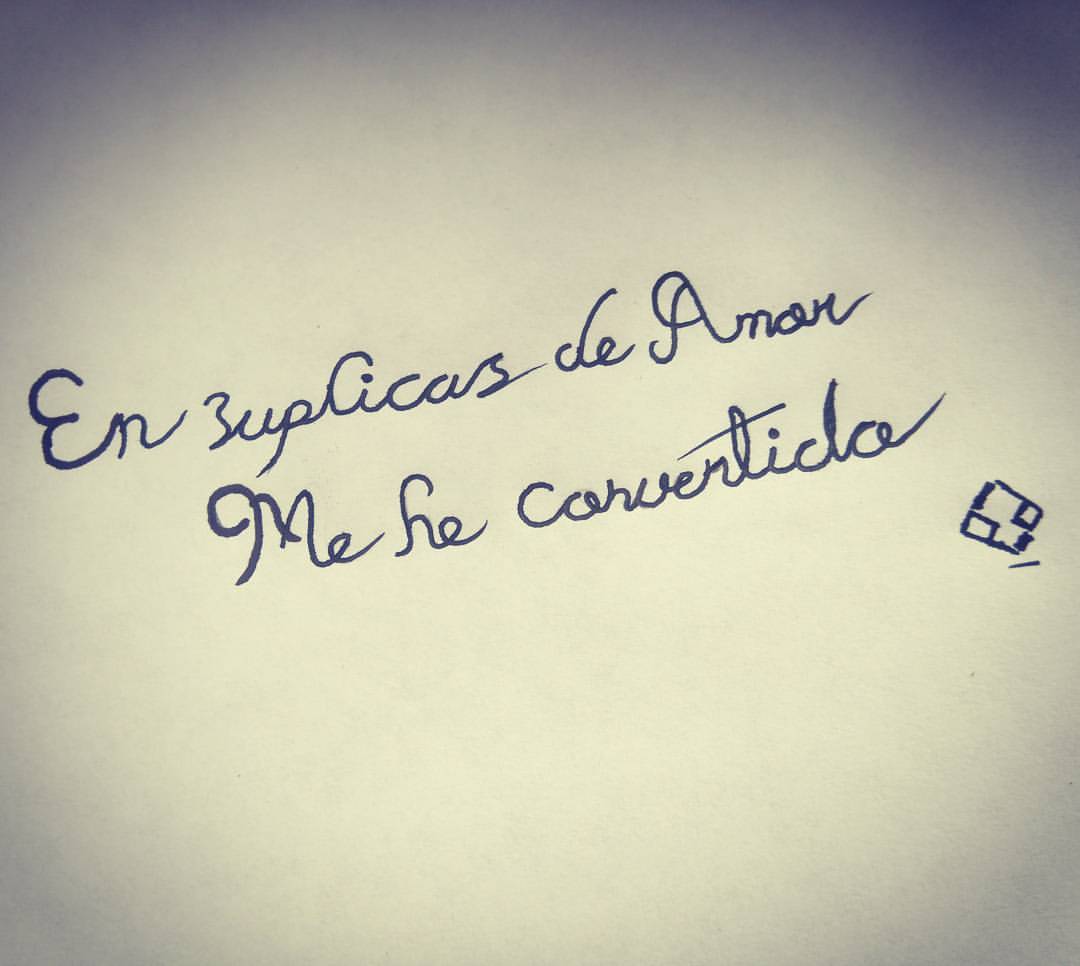 En suplicas de Amor
Me he convertido